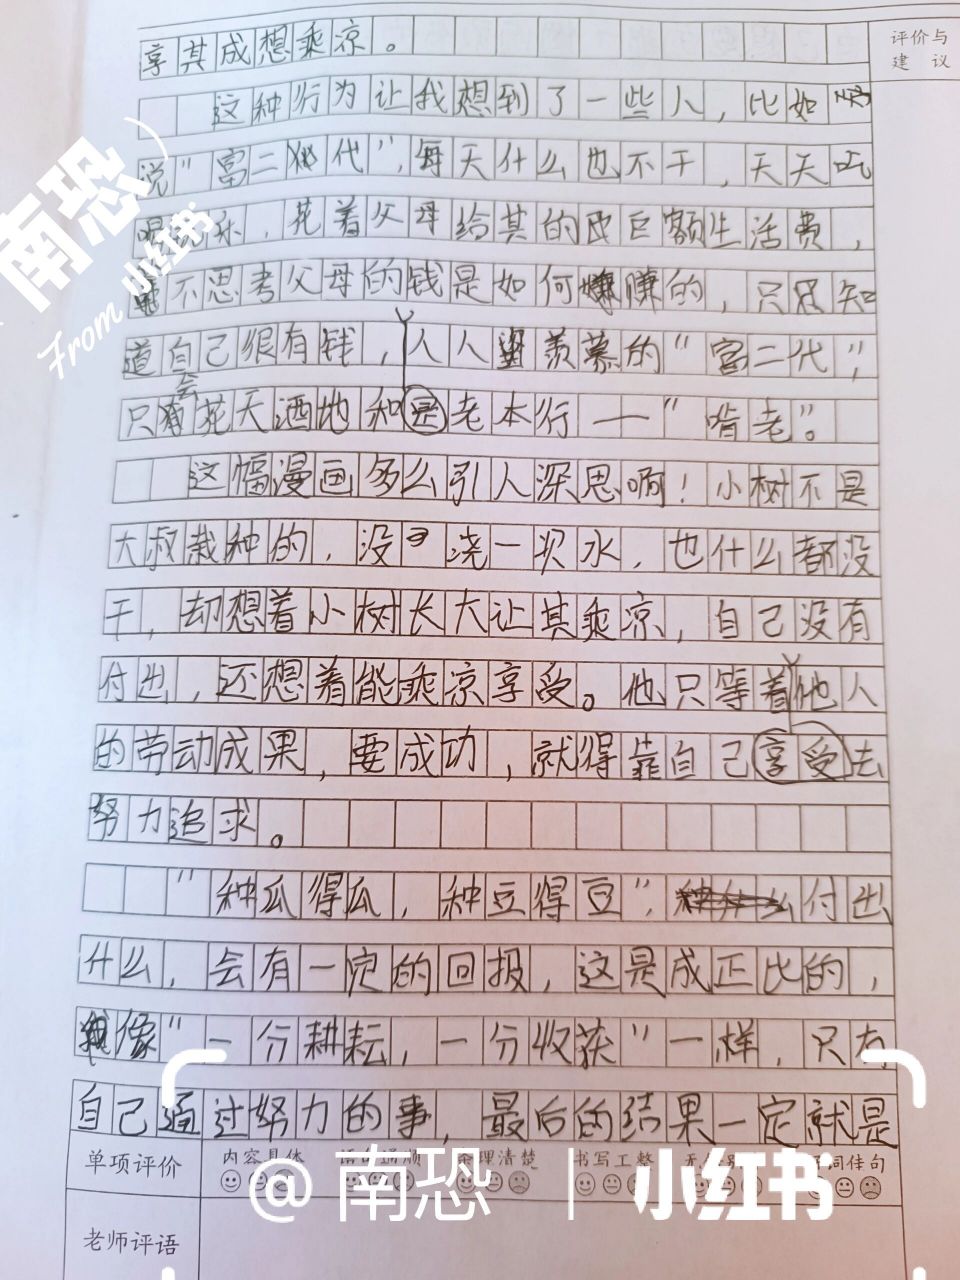 享其成想乘凉。
评价与
建 议
这种行为让我想到了一些人，比如
说“富二代”，每天什么也不干，天天吃
喝玩乐，花着父母给其的巨额生活费，
不思考父母的钱是如何赚的，只知
道自己很有钱，人人羡慕的“富二代”，
会
只花天酒地和是老本行——“啃老”。
这幅漫画多么引人深思啊！小树不是
大叔栽种的，没浇一次水，也什么都没
干，却想着小树长大让其乘凉，自己没有
付出，还想着能乘凉享受。他只等着他人
的劳动成果，要成功，就得靠自己享受去
努力追求。
“种瓜得瓜，种豆得豆”，付出
什么，会有一定的回报，这是成正比的，
像“一分耕耘，一分收获”一样，只有
自己通过努力的事，最后的结果一定就是
单项评价 内容具体 语句通顺 条理清楚 书写工整
老师评语
南恐
From 小红书
@南恐 | 小红书